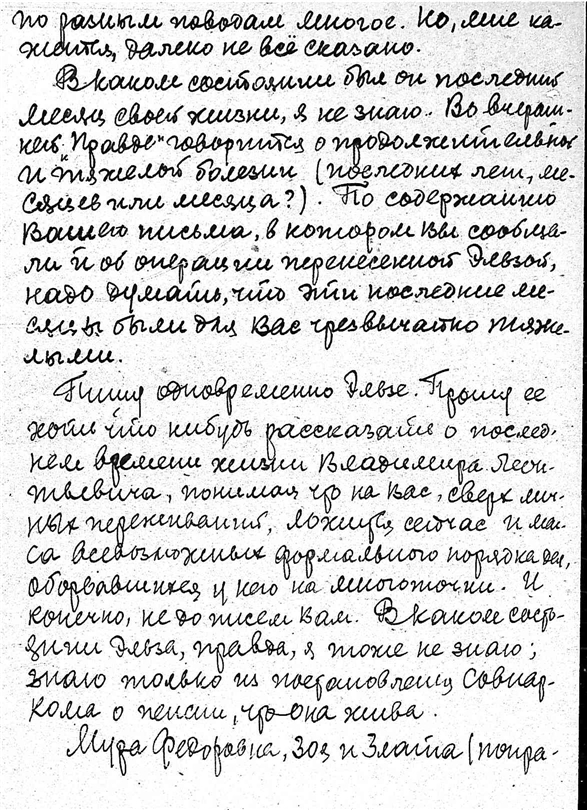 по разным поводам многое. Но, мне ка-
жется, далеко не всё сказано.
В каком состоянии был он последний
месяц своей жизни, я не знаю. Во вчераш-
ней „Правде" говорится о продолжительной
и тяжелой болезни (последних лет, ме-
сяцев или месяца?). По содержанию
Вашего письма, в котором Вы сообща-
ли и об операции перенесенной Эльзой,
надо думать, что эти последние ме-
сяцы были для Вас чрезвычайно тяже-
лыми.
Пишу одновременно Эльзе. Прошу ее
хоть что нибудь рассказать о послед-
нем времени жизни Владимира Леон-
тьевича, понимая что на Вас, сверх лич-
ных переживаний, ложится сейчас и мас-
са всевозможных формального порядка дел,
оборвавшихся у него на многоточии. И
конечно, не до писем Вам. В каком состо-
янии Эльза, правда, я тоже не знаю;
знаю только из постановления Совнар-
кома о пенсии, что она жива.
Мура Федоровна, Зоя и Злата (попра-